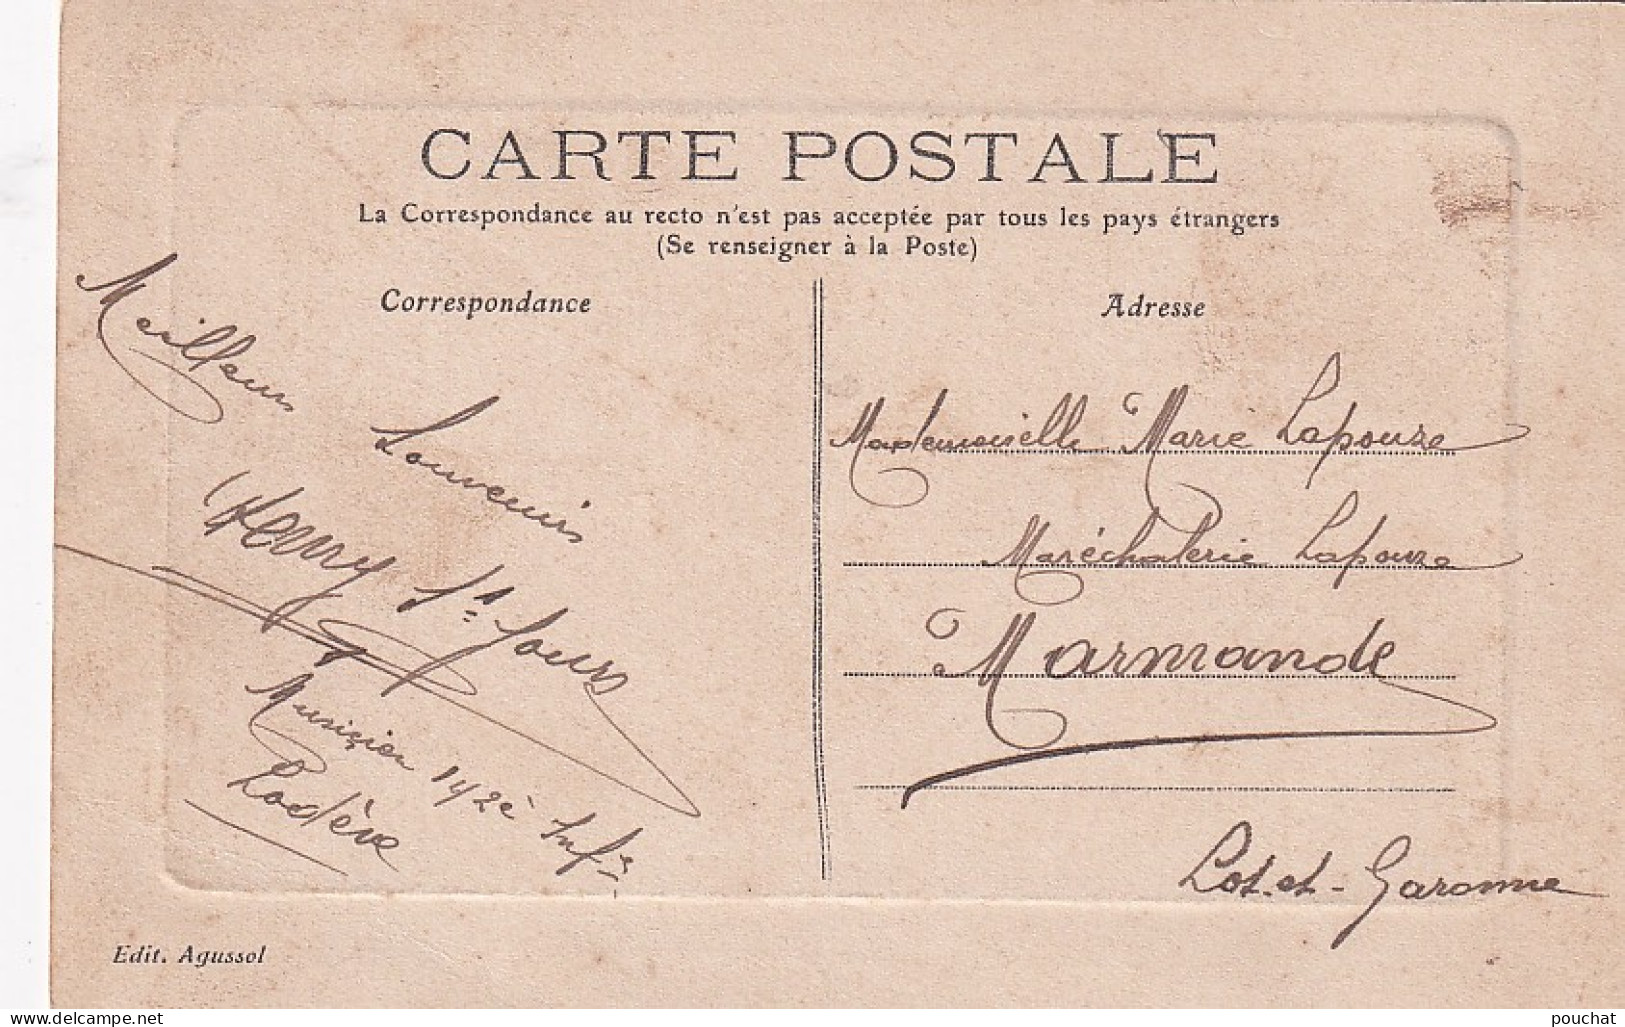 CARTE POSTALE
La Correspondance au recto n'est pas acceptée par tous les pays étrangers
(Se renseigner à la Poste)
Correspondance
Meilleurs
Souvenirs
Henry St
Musicien 142è Inf
Lodève
Adresse
Mademoiselle Marie Lapouze
Maréchalerie Lapouze
Marmande
Lot-et-Garonne
Edit. Agussol
www.delcampe.net
pouchat